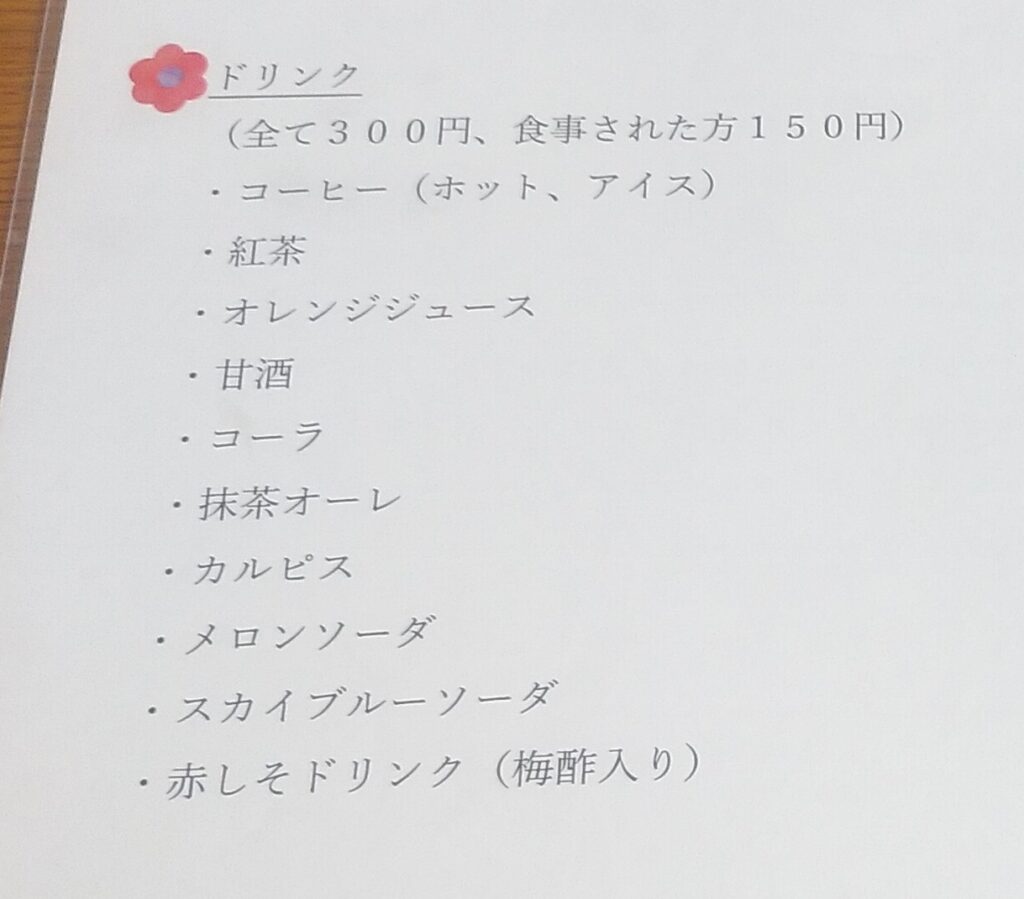 ドリンク
（全て３００円、食事された方１５０円）
・コーヒー（ホット、アイス）
・紅茶
・オレンジジュース
・甘酒
・コーラ
・抹茶オーレ
・カルピス
・メロンソーダ
・スカイブルーソーダ
・赤しそドリンク（梅酢入り）